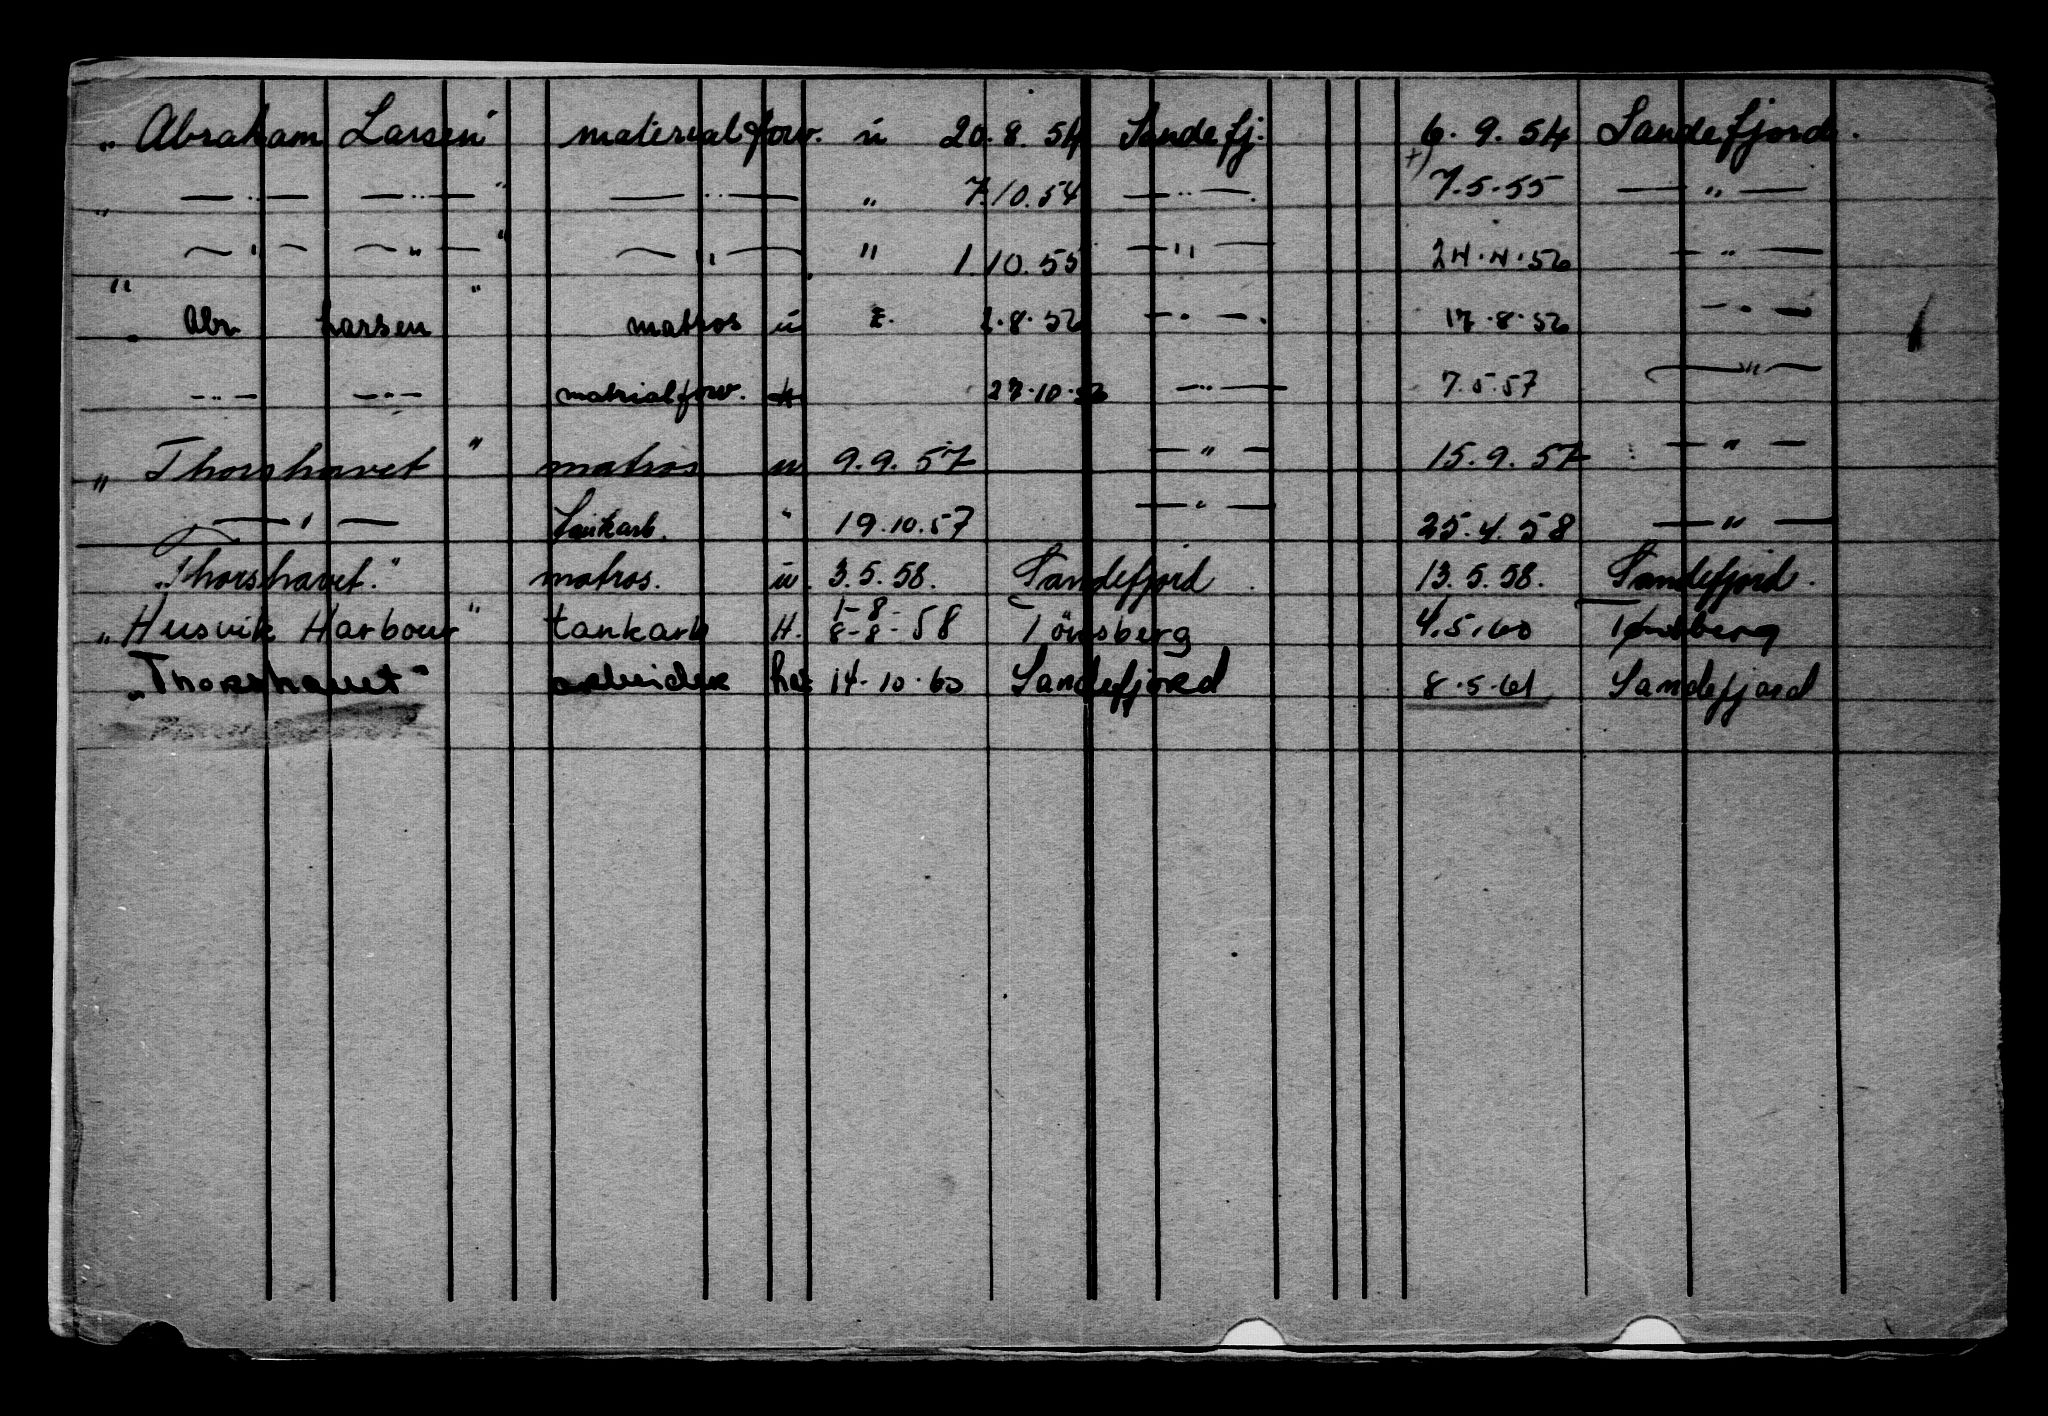 „Abraham Larsen" materialforv. u 20.8.54 Sandefj: 6.9.54 Sandefjord.
„ —..— —..— " —..— „ 7.10.54 —..—. +) 7.5.55 —„—
„ —"— —„— " —„— " 1.10.55 —"— 24.4.56 —„—
„ Abr. Larsen " matros u 2.8.56 —.—. 17.8.56 —.—
—..— —..— matrialforv. H 27.10.56 —..— 7.5.57 —"—
„Thorshavet" matros u 9.9.57 —"— 15.9.57 —"—
—"— Tankarb. " 19.10.57 —"— 25.4.58 —"—
„Thorshavet." matros. u. 3.5.58. Sandefjord. 13.5.58. Sandefjord.
„Husvik Harbour" tankarb H. 1-8- 8-8-58 Tönsberg 4.5.60 Tønsberg
„Thorshavet" arbeider 14-10-60 Sandefjord 8.5.61 Sandefjord